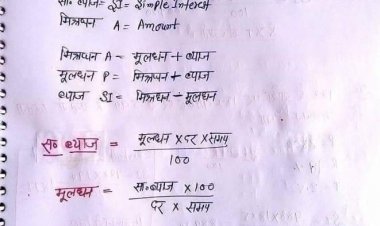 सा० ब्याज= SI= Simple Interest
मिश्रधन A= Amount
मिश्रधन A = मूलधन + ब्याज
मूलधन P= मिश्रधन + ब्याज
ब्याज SI= मिश्रधन - मूलधन
स० ब्याज = मूलधन ×दर ×समय
100
मूलधन = सा०ब्याज ×100
दर × समय